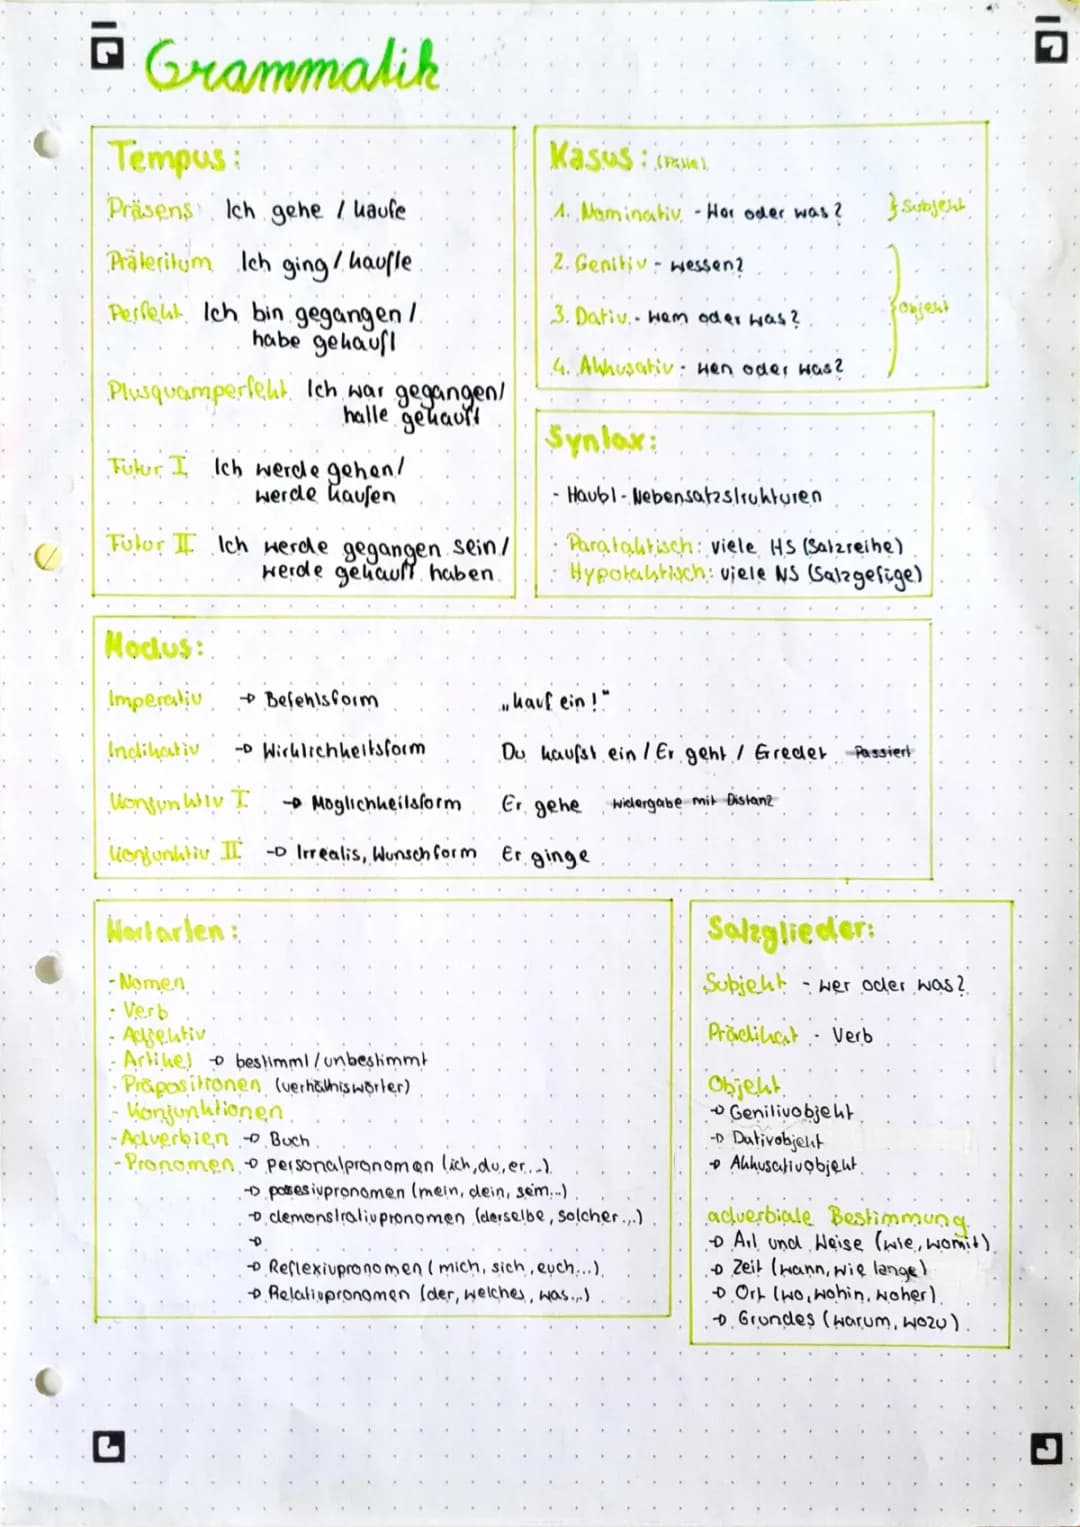 Grammatik
Tempus:
Präsens Ich gehe / kaufe
Präteritum Ich ging / kaufte
Perfekt Ich bin gegangen /
habe gekauft
Plusquamperfekt Ich war gegangen/
hatte gekauft
Futur I Ich werde gehen/
werde kaufen
Futur II Ich werde gegangen sein/
werde gekauft haben
Kasus: (Fälle)
1. Nominativ - Wer oder was? } Subjekt
2. Genitiv - wessen?
3. Dativ - wem oder was? } Objekt
4. Akkusativ - wen oder was?
Syntax:
- Haubt-Nebensatzstrukturen
- Parataktisch: viele HS (Satzreihe)
- Hypotaktisch: viele NS (Satzgefüge)
Modus:
Imperativ → Befehlsform „kauf ein!"
Indikativ → Wirklichkeitsform Du kaufst ein / Er geht / Er redet Passiert
Konjunktiv I → Möglichkeitsform Er gehe Widergabe mit Distanz
Konjunktiv II → Irrealis, Wunschform Er ginge
Wortarten:
- Nomen
- Verb
- Adjektiv
- Artikel → bestimmt / unbestimmt
- Präpositionen (verhältniswörter)
- Konjunktionen
- Adverbien → Buch
- Pronomen → personalpronomen (ich, du, er...)
→ posesivpronomen (mein, dein, sein...)
→ demonstrativpronomen (derselbe, solcher...)
→
→ Reflexivpronomen (mich, sich, euch...)
→ Relativpronomen (der, welches, was...)
Satzglieder:
Subjekt - wer oder was?
Prädikat - Verb
Objekt
→ Genitivobjekt
→ Dativobjekt
→ Akkusativobjekt
adverbiale Bestimmung
→ Art und Weise (wie, womit)
→ Zeit (wann, wie lange)
→ Ort (wo, wohin, woher)
→ Grundes (warum, wozu)